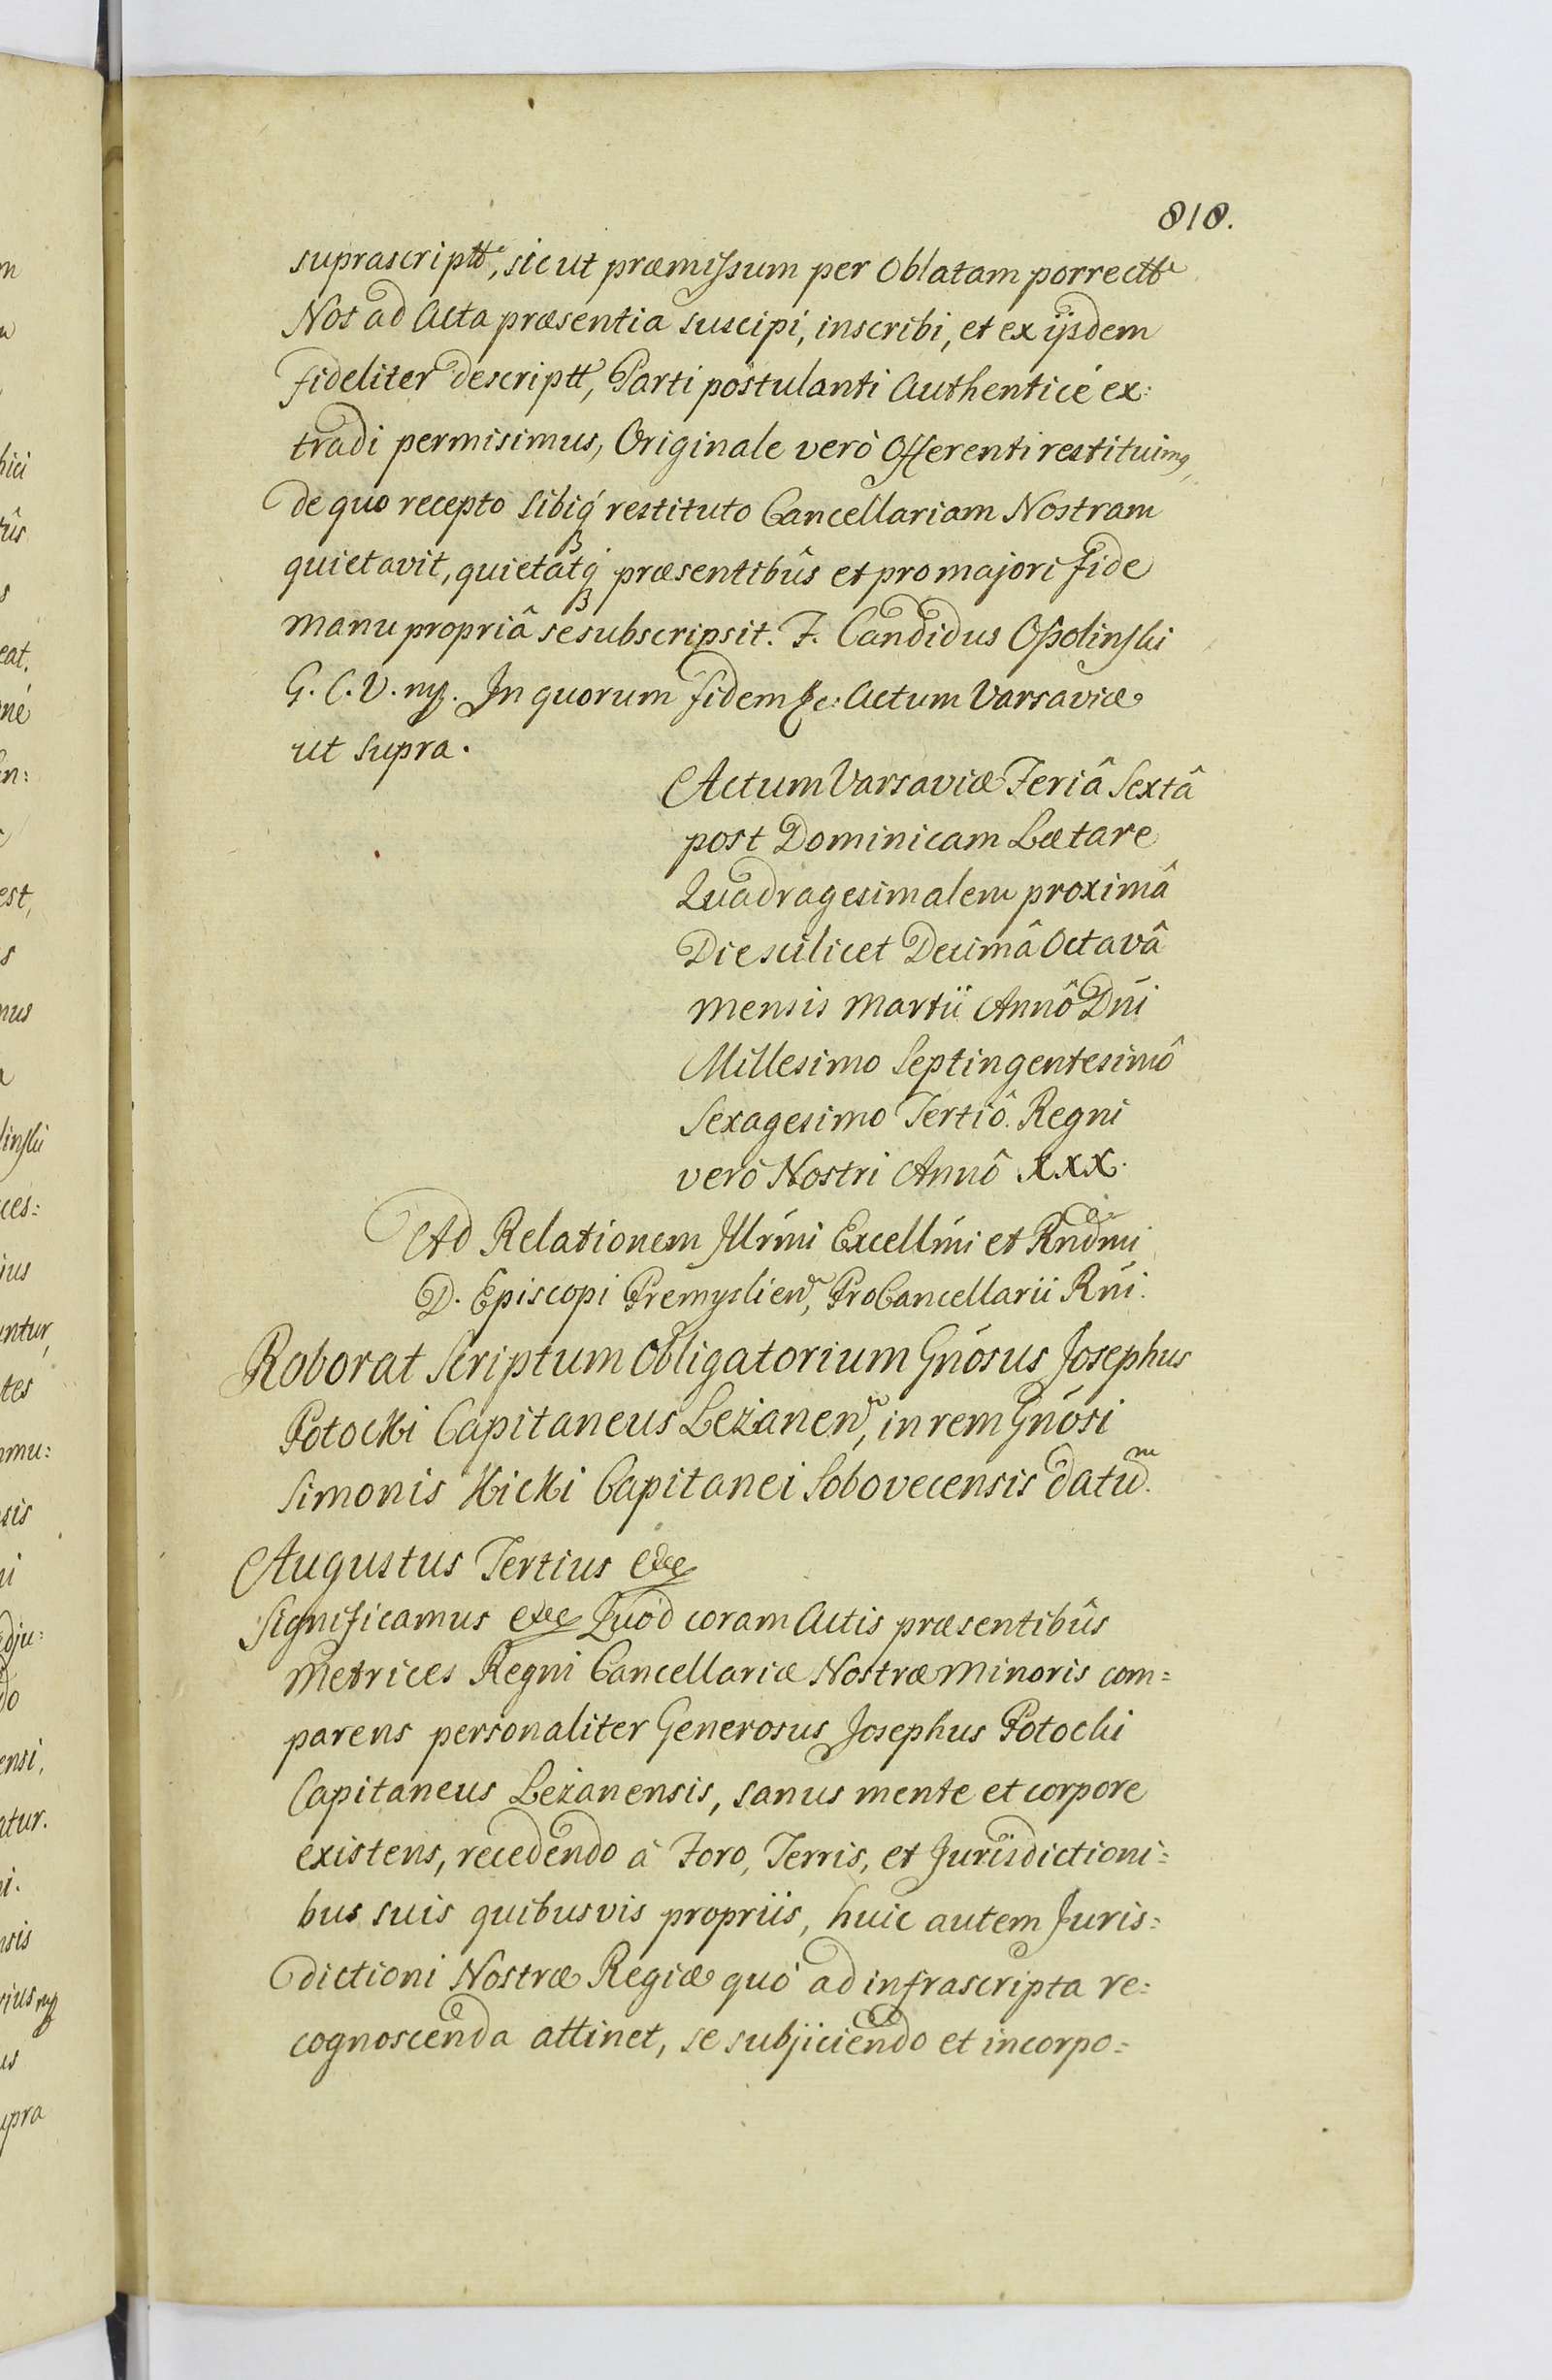 818.
suprascriptt, sicut præmissum per Oblatam porrectt
Nos ad Acta præsentia suscipi, inscribi, et ex ijsdem
fideliter descriptt, Parti postulanti Authenticé ex:
tradi permisimus, Originale verò Offerenti restituimq,
de quo recepto sibiq́ restituto Cancellariam Nostram
quietavit, quietatq́ præsentibûs et pro majori fide
manu propriâ se subscripsit. F. Candidus Ossolinski
G. C. V. mp. In quorum fidem &c: Actum Varsaviæ
ut supra.
Actum Varsaviæ Feriâ Sextâ
post Dominicam Lætare
Quadragesimalem proximâ
Die scilicet Decimâ Octavâ
mensis Martii Annô Dńi
Millesimo Septingentesimô
Sexagesimo Tertiô. Regni
verò Nostri Annô XXX.
Ad Relationem Illrḿi Excellḿi et Rndmi
D. Episcopi Premyslien, ProCancellarii Rńi.
Roborat Scriptum Obligatorium Gńosus Josephus
Potocki Capitaneus Leżanen, in rem Gńosi
Simonis Kicki Capitanei Sobovecensis datum.
Augustus Tertius &c
Significamus &c Quod coram Actis præsentibûs
Metrices Regni Cancellariæ Nostræ Minoris com=
parens personaliter Generosus Josephus Potocki
Capitaneus Leżanensis, sanus mente et corpore
existens, recedendo à Foro, Terris, et Jurisdictioni=
bus suis quibusvis propriis, huic autem Juris=
dictioni Nostræ Regiæ quò ad infrascripta re=
cognoscenda attinet, se subjiciendo et incorpo=